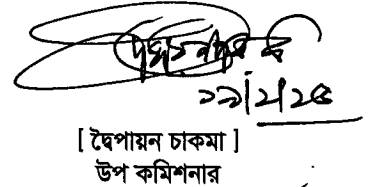 ২৯/১/২৫
[ দ্বৈপায়ন চাকমা ]
উপ কমিশনার